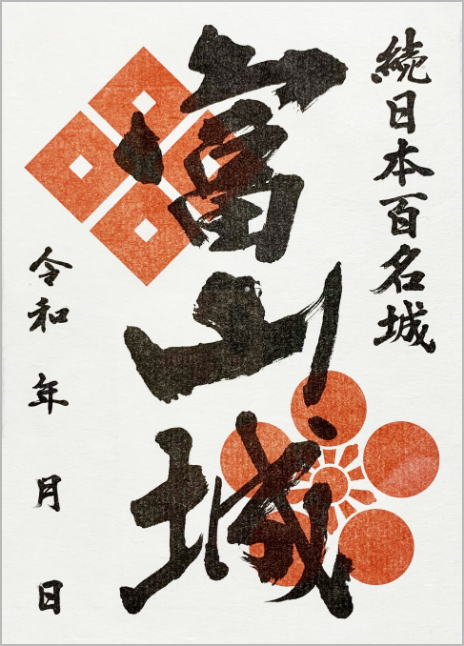 続日本百名城
富山城
令和 年 月 日